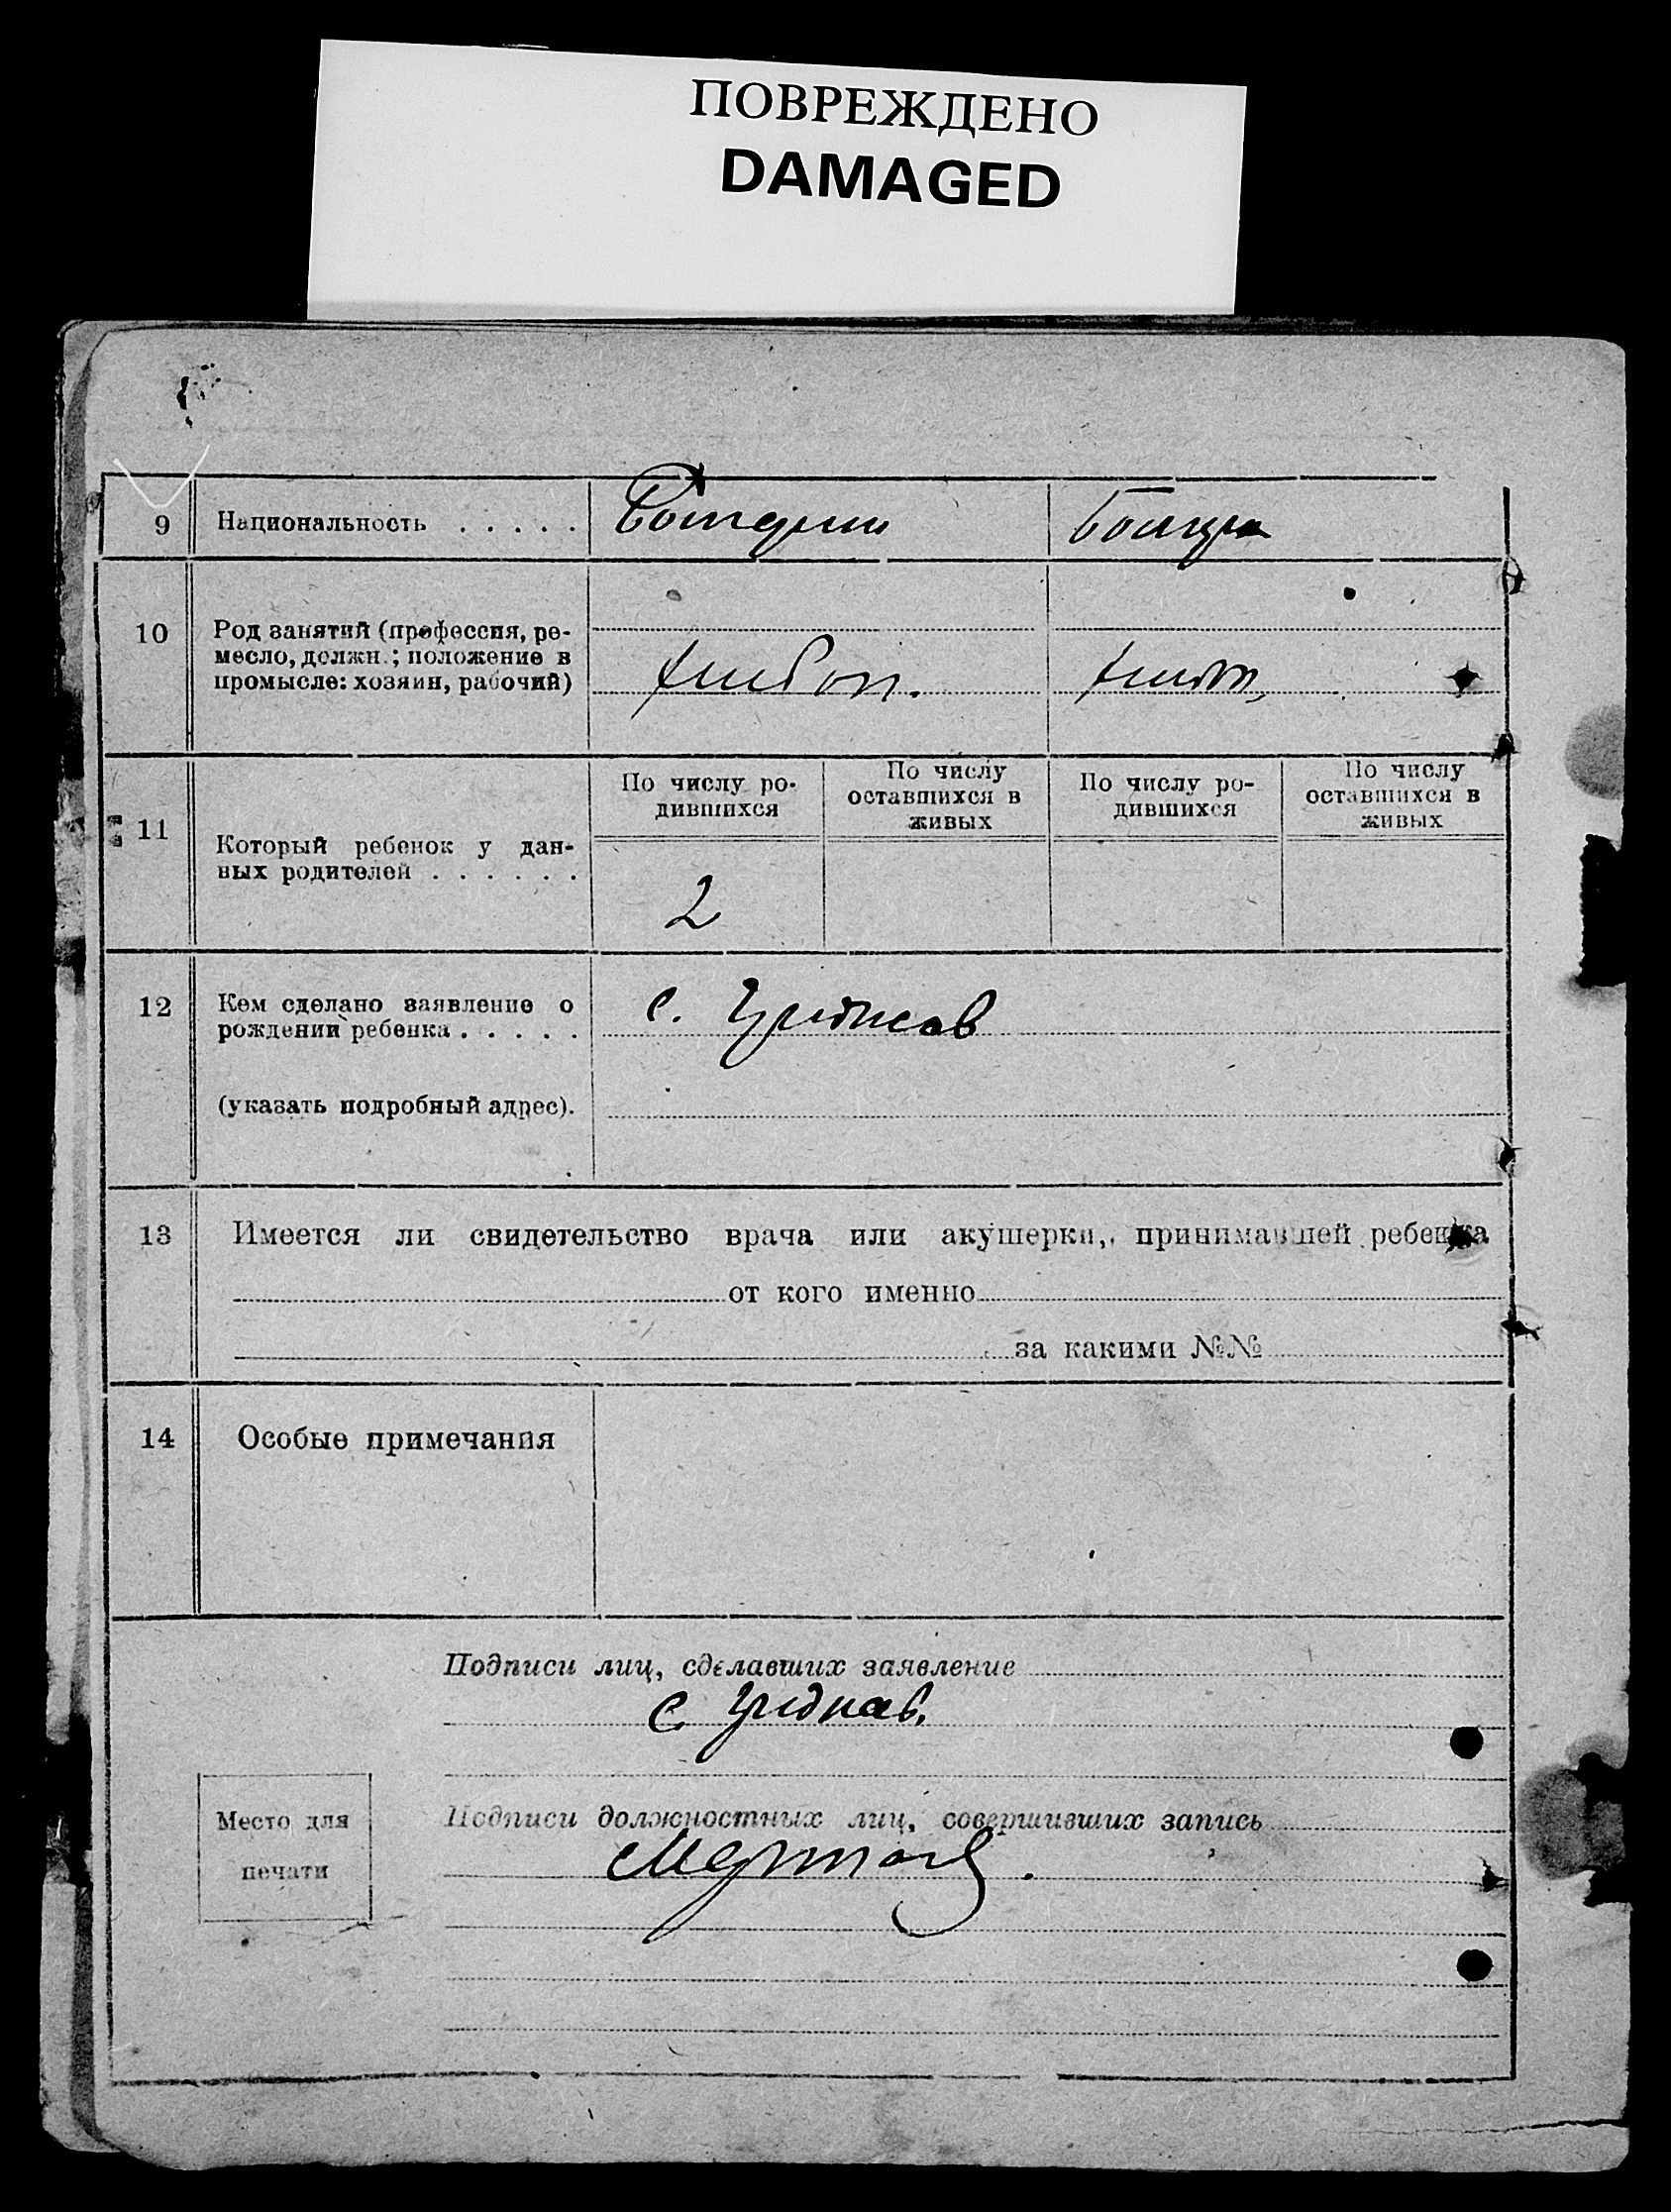 ПОВРЕЖДЕНО
DAMAGED
9 Национальность . . . . .
10 Род занятий (профессия, ре-
месло, должн.; положение в
промысле: хозяин, рабочий)
По числу ро-
дившихся
По числу
оставшихся в
живых
По числу ро-
дившихся
По числу
оставшихся в
живых
11 Который ребенок у дан-
ных родителей . . . . . .
2
12 Кем сделано заявление о
рождении ребенка . . . . .
с.
(указать подробный адрес).
13 Имеется ли свидетельство врача или акушерки, принимавшей ребенка
от кого именно
за какими №№
14 Особые примечания
Подписи лиц, сделавших заявление
с
Место для
печати
Подписи должностных лиц, совершивших запись